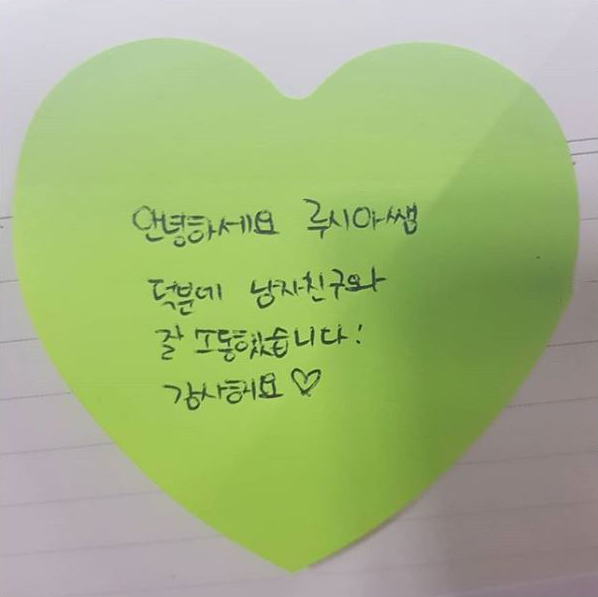 안녕하세요 루시아쌤
덕분에 남자친구와
잘 소통했습니다!
감사해요♡